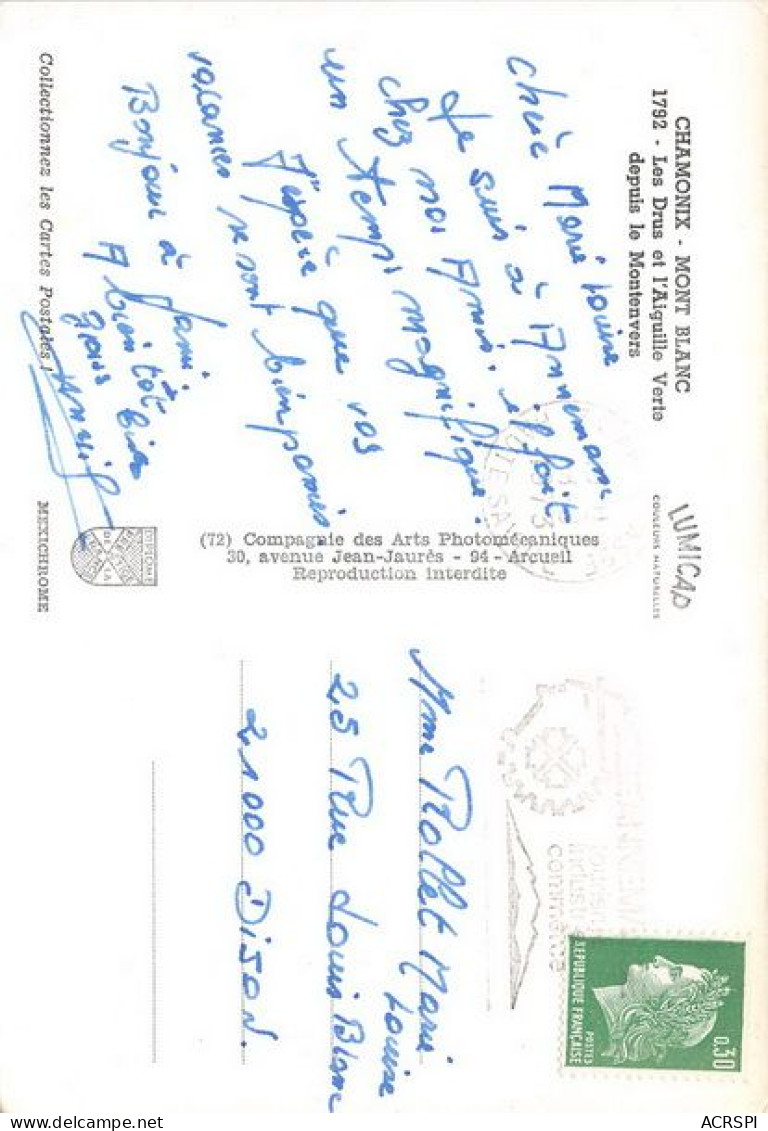 CHAMONIX - MONT BLANC
1792 - Les Drus et l'Aiguille Verte
depuis le Montenvers
chère Marie Louise
Je suis à Annemasse
chez nos Amis, il fait
un temps magnifique.
J'espère que vos
vacances se sont bien passées
Bonjour à
A bientôt
Collectionnez les Cartes Postales !
MEXICHROME
DIPLOME
PRESTIGE
DE LA
FRANCE
(72) Compagnie des Arts Photomécaniques
30, avenue Jean-Jaurès - 94 - Arcueil
Reproduction interdite
LUMICAP
COULEURS NATURELLES
HTE SAV
ANNEMA
tourisme
industrie
commerce
REPUBLIQUE FRANÇAISE
POSTES
0,30
Mme Rollet Marie
Louise
25 Rue Louis Blanc
21000 DIJON.
ACRSPI